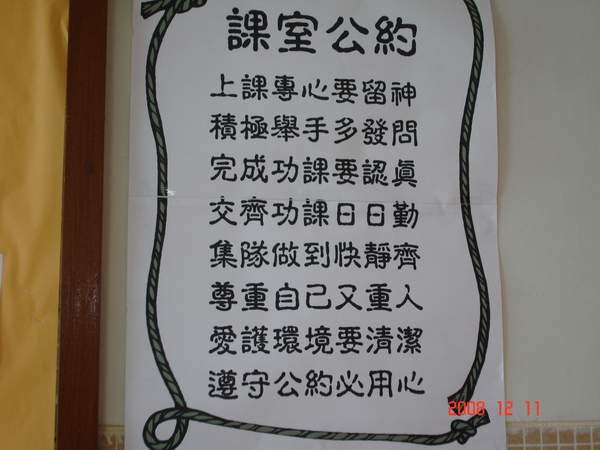 課室公約
上課專心要留神
積極舉手多發問
完成功課要認真
交齊功課日日勤
集隊做到快靜齊
尊重自己又重人
愛護環境要清潔
遵守公約必用心
2008 12 11